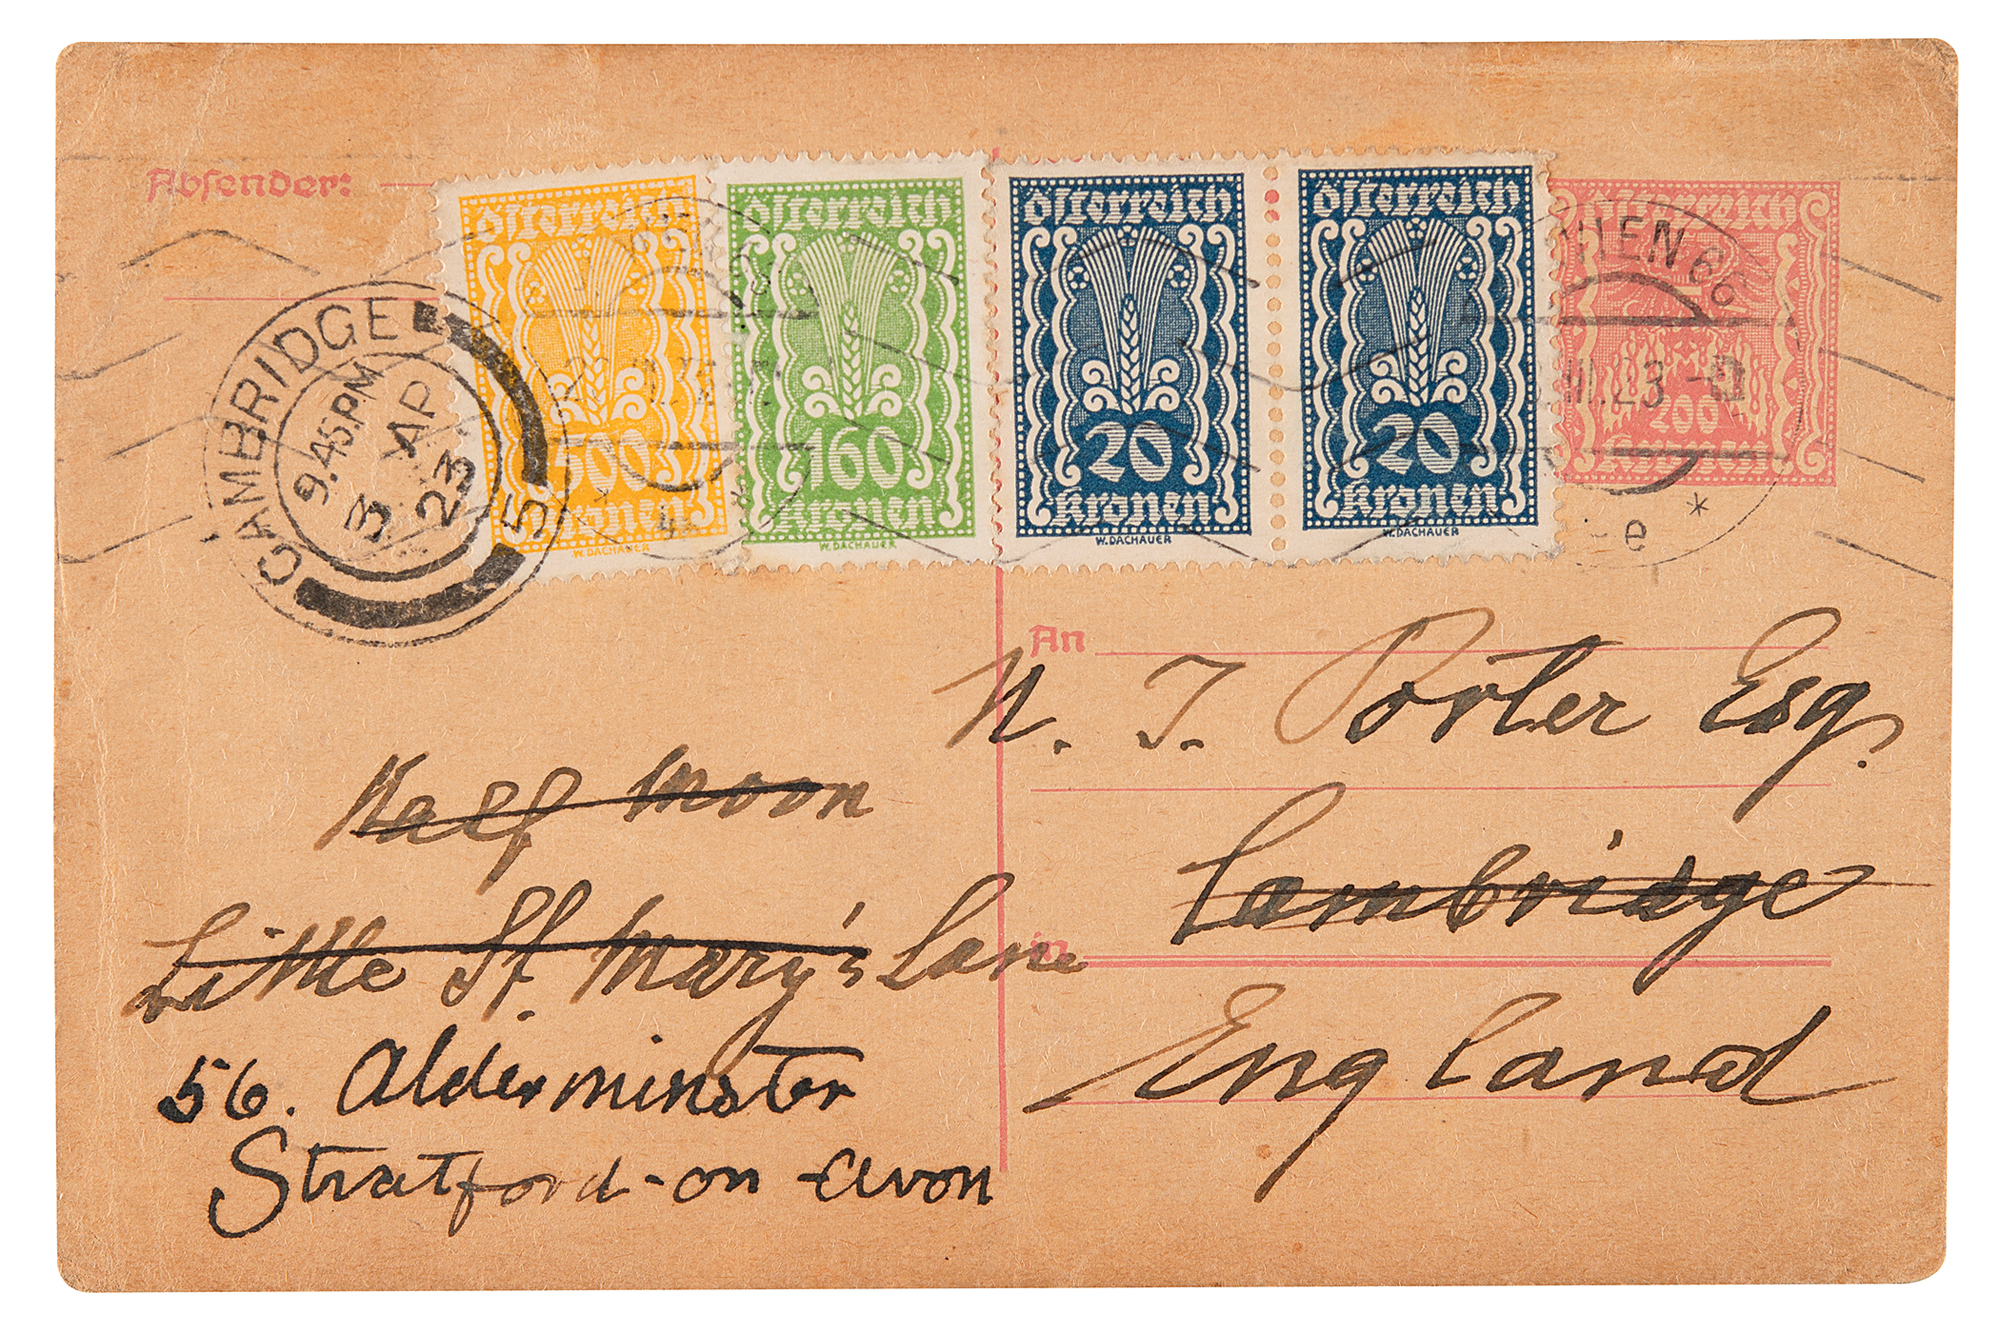 Absender:
österreich
500
kronen
W. DACHAUER
österreich
160
kronen
W. DACHAUER
österreich
20
kronen
W. DACHAUER
österreich
20
kronen
W. DACHAUER
österreich
200
kronen
WIEN 66
III.23
e *
CAMBRIDGE
9.45 PM
3 AP
23
5
An
N. T. Porter Esq.
Cambridge
in
England
Half Moon
Little St. Mary's Lane
56. Alderminster
Stratford-on-Avon